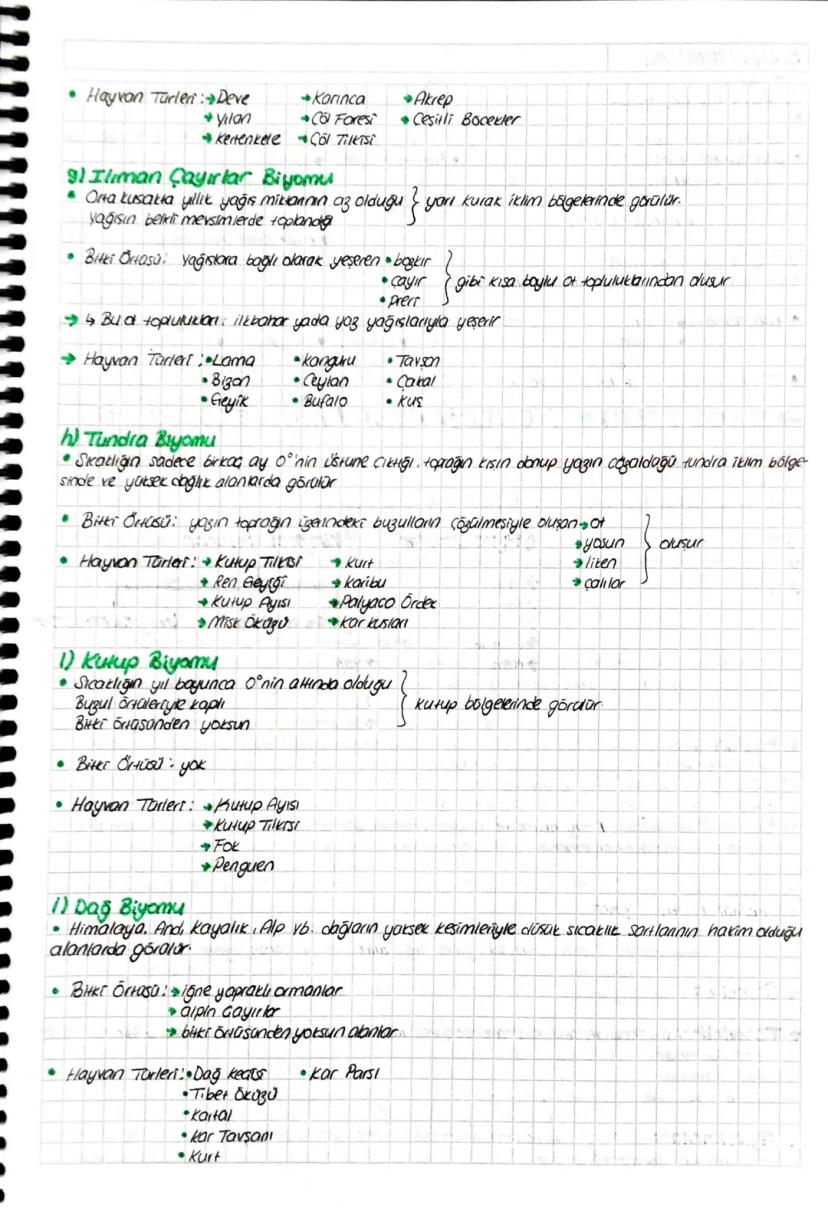 • Hayvan Türleri :→Deve →Karınca →Akrep
→Yılan →Çöl Faresi →Çeşitli Böcekler
→Kertenkele →Çöl Tilkisi
g) Ilıman Çayırlar Biyomu
• Orta kuşakta yıllık yağış miktarının az olduğu } yarı kurak iklim bölgelerinde görülür.
Yağışın belirli mevsimlerde toplandığı
• Bitki Örtüsü: yağışlara bağlı olarak yeşeren • bozkır
• çayır } gibi kısa boylu ot topluluklarından oluşur
• preri
→ ↳ Bu ot toplulukları: ilkbahar yada yaz yağışlarıyla yeşerir
→ Hayvan Türleri : •Lama •Kanguru •Tavşan
•Bizon •Ceylan •Çakal
•Geyik •Bufalo •Kuş
h) Tundra Biyomu
• Sıcaklığın sadece birkaç ay 0°'nin üstüne çıktığı, toprağın kışın donup yazın çözüldüğü tundra iklim bölge-
sinde ve yüksek dağlık alanlarda görülür
• Bitki Örtüsü: yazın toprağın üzerindeki buzulların çözülmesiyle oluşan→ot
→yosun } oluşur
• Hayvan Türleri: →Kutup Tilkisi →Kurt →liken
→Ren Geyiği →Karibu →çalılar
→Kutup Ayısı →Palyaço Ördek
→Misk Öküzü →Kar kuşları
ı) Kutup Biyomu
• Sıcaklığın yıl boyunca 0°nin altında olduğu
Buzul örtüleriyle kaplı } kutup bölgelerinde görülür.
Bitki örtüsünden yoksun
• Bitki Örtüsü: yok
• Hayvan Türleri: →Kutup Ayısı
→Kutup Tilkisi
→Fok
→Penguen
i) Dağ Biyomu
• Himalaya, And, Kayalık, Alp vb. dağların yüksek kesimleriyle düşük sıcaklık şartlarının hakim olduğu
alanlarda görülür.
• Bitki Örtüsü: →iğne yapraklı ormanlar
→alpin çayırlar
→bitki örtüsünden yoksun alanlar
• Hayvan Türleri: •Dağ keçisi •Kar Parsı
•Tibet Öküzü
•Kartal
•Kar Tavşanı
•Kurt